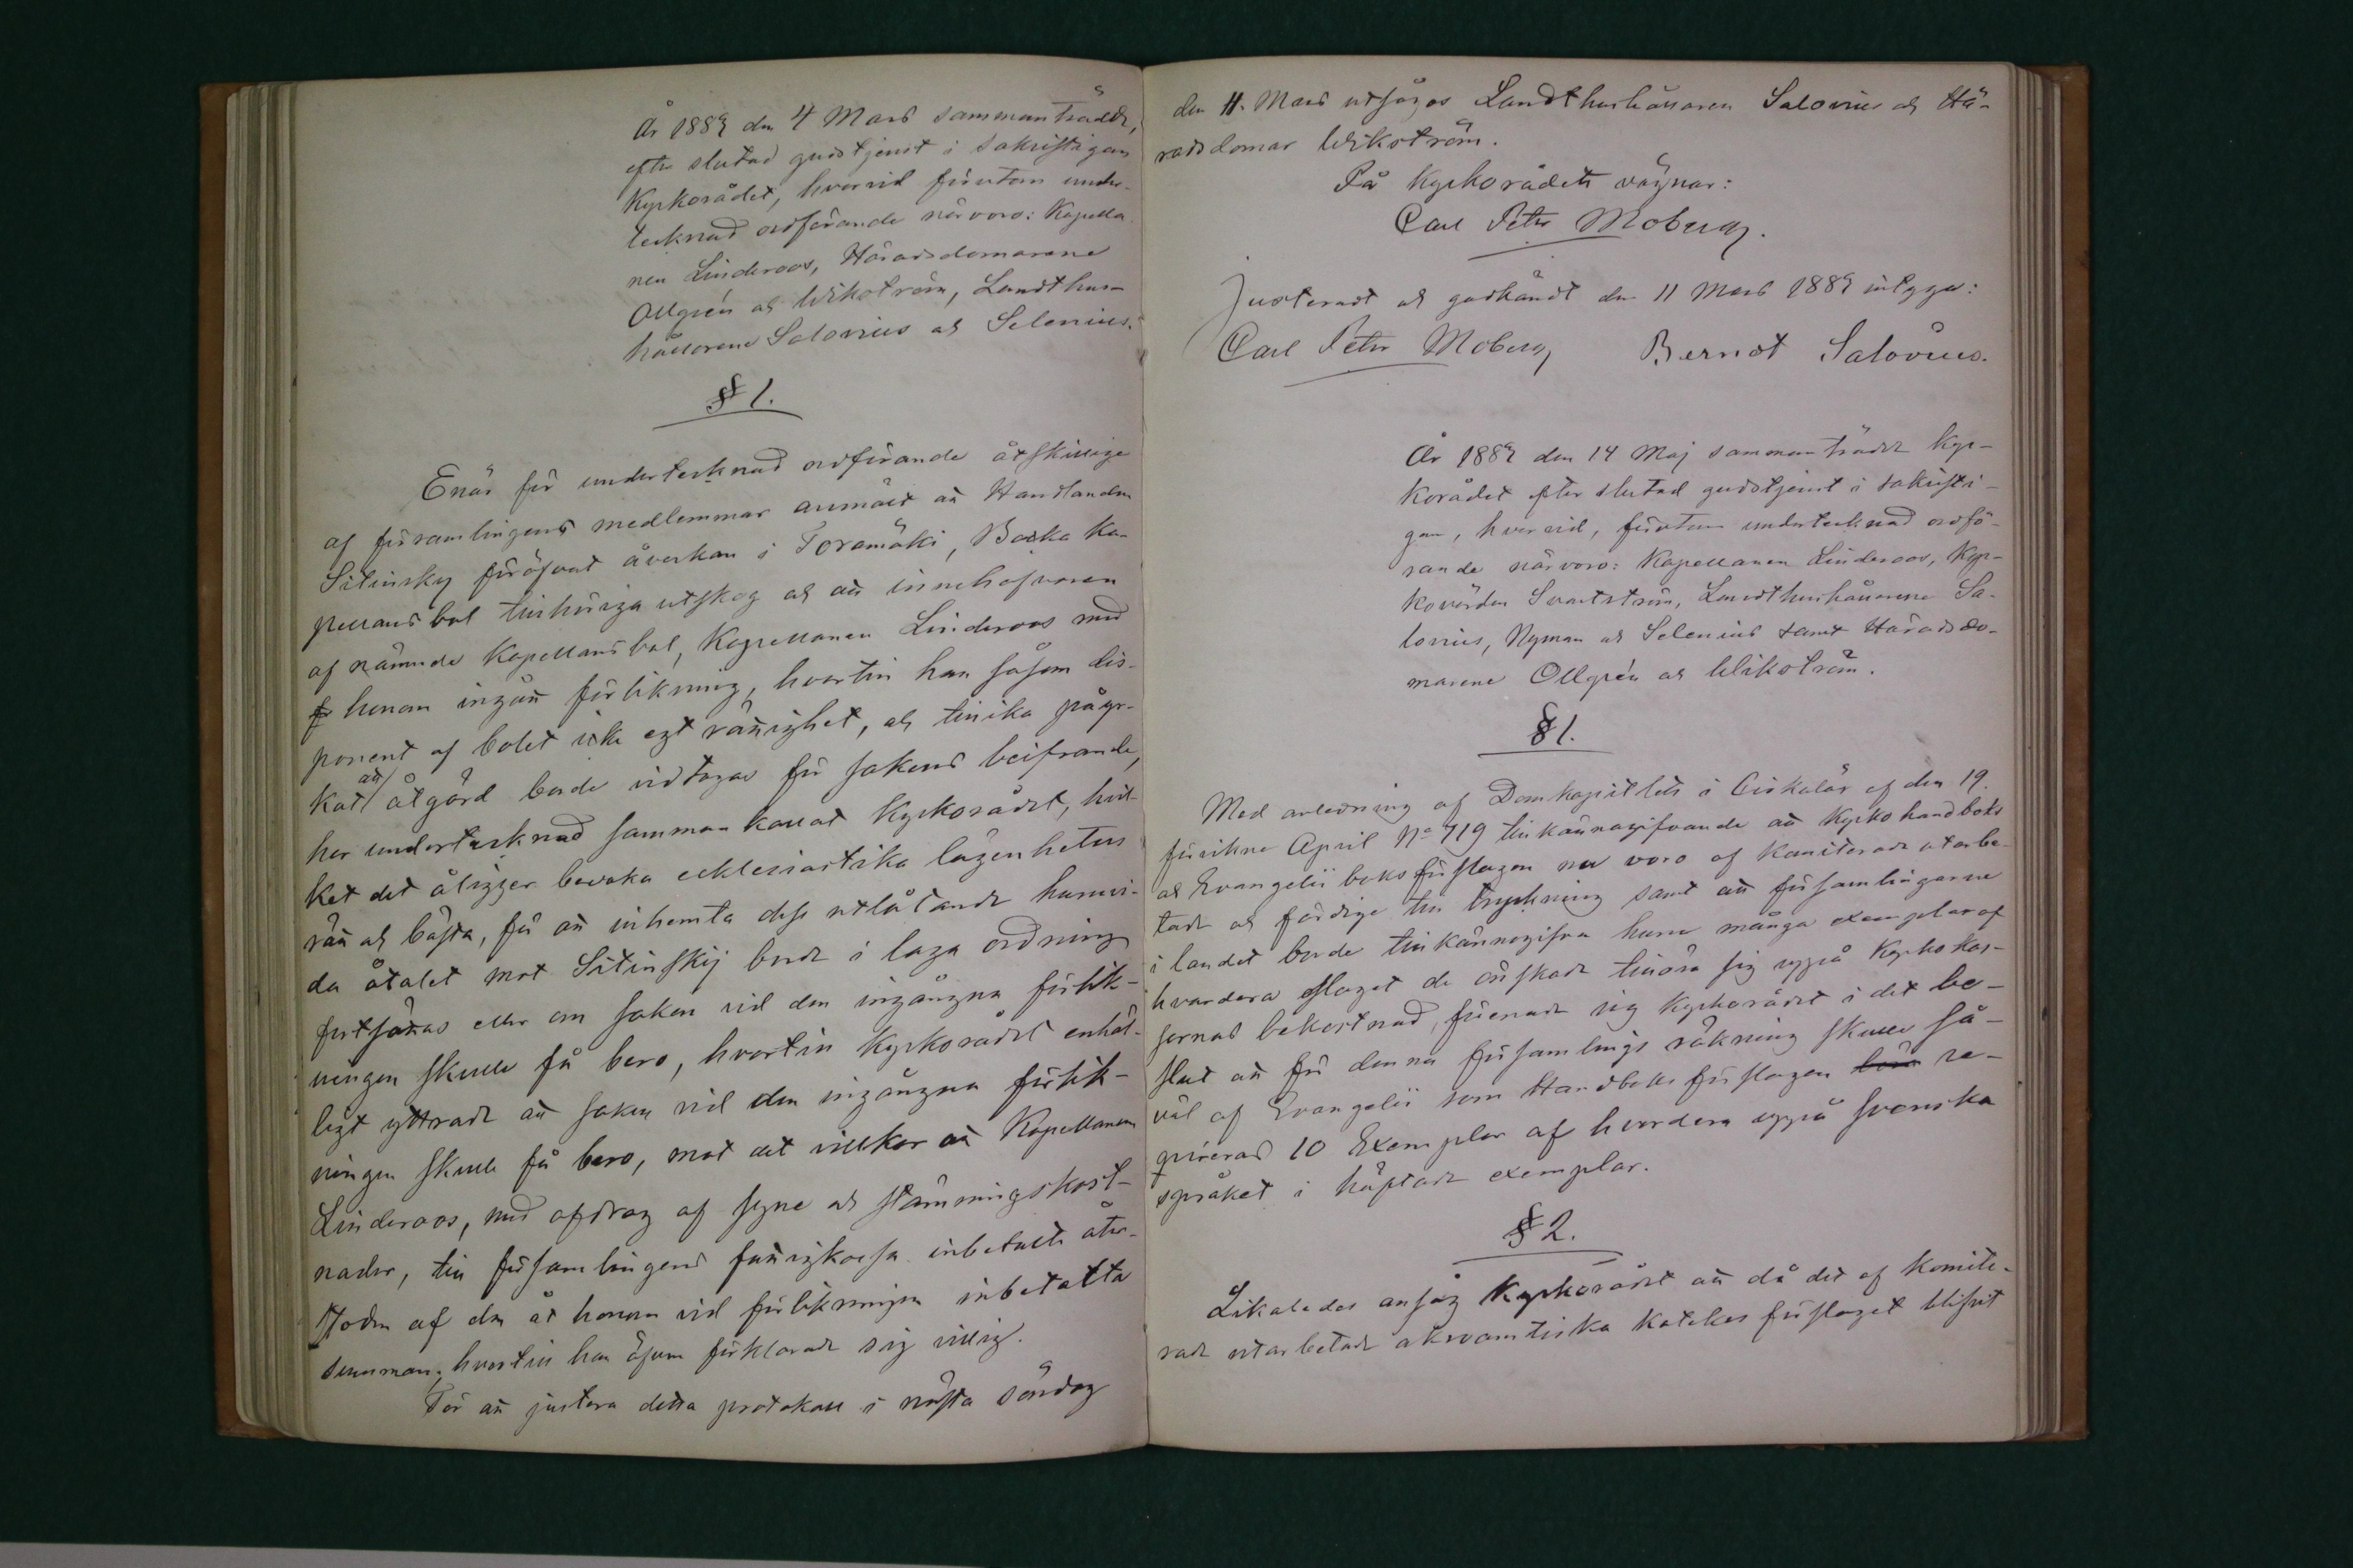 År 1889 den 4 Mars sammanträdde,
efter slutad gudstjenst i sakristigan
Kyrkorådet, hvarvid förutom under-
tecknad ordförande närvoro: Kapella
nen Linderoos, Häradsdomarene
Ollgrén och Wikström, Landthus-
hållarene Salovius och Selenius.
§ 1.
Enär för undertecknad ordförande åtskillige
af församlingens medlemmar anmält att Handlanden
Sitinsky föröfvat åverkan i Toramäki, Backa Ka-
pellansbol tillhöriga utskog och att innehafvaren
af nämnde Kapellansbol, Kapellanen Linderoos med
honom ingått förlikning, hvartill han såsom dis-
ponent af bolet icke egt rättighet, och tillika påyr-
kat att åtgärd borde vidtagas för sakens beifrande,
har undertecknad sammankallat Kyrkorådet, hvil-
ket det åligger bevaka ecklesiastika lägenheters
rätt och bästa, för att inhemta dess utlåtande huruvi-
da åtalet mot Sitinskij borde i laga ordning
fortsättas eller om saken vid den ingångna förlik-
ningen skulle få bero, hvartill Kyrkorådet enhäl-
ligt yttrade att saken vid den ingångna förlik-
ningen skulle få bero, mot det villkor att Kapellanen
Linderoos, med afdrag af syne och stämningskost-
nader, till församlingens fattigkassa inbetalte åter-
stoden af den åt honom vid förlikningen inbetalta
summan; hvartill han äfven förklarade sig villig.
För att justera detta protokoll i nästa söndag
den 11. Mars utsågos Landthushållaren Salovius och Hä-
radsdomar Wikström.
På Kyrkorådets vägnar:
Carl Petr Moberg.
Justeradt och godkändt den 11 Mars 1889 intyga:
Carl Petr Moberg Berndt Salovius.
År 1889 den 14 Maj sammanträdde Kyr-
korådet efter slutad gudstjenst i sakristi-
gan, hvarvid, förutom undertecknad ordfö-
rande närvoro: Kapellanen Linderoos, Kyr-
kovärden Svartström, Landthushållarene Sa-
lovius, Nyman och Selenius samt Häradsdo-
marene Ollgrén och Wikström.
§ 1.
Med anledning af Domkapitlets i Cirkulär af den 19.
förvikne April No 719 tillkännagifvande att Kyrkohandboks
och Evangelii boksförslagen nu voro af Komiterade utarbe-
tade och färdige till tryckning samt att församlingarne
i landet borde tillkännagifva huru många exemplar af
hvardera slaget de önskade tillösa sig uppå Kyrkokas-
sornas bekostnad, förenade sig Kyrkorådet i det be-
slut att för denna församlings räkning skulle så-
väl af Evangelii som Handboks förslagen re-
qvireras 10 Exemplar af hvardera uppå svenska
språket i häftade exemplar.
§ 2.
Likaledes ansåg Kyrkorådet att då det af Komite-
rade utarbetade akroamatiska katekes förslaget blifvit